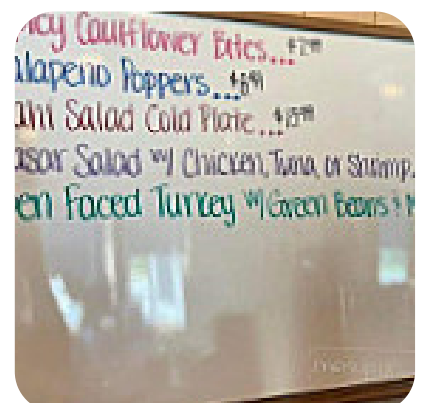 icy Cauliflower Bites...
alapeno Poppers...
ahi Salad Cold Plate...
asar Salad w/ Chicken, Tuna, or Shrimp.
en Faced Turkey w/ Green Beans &